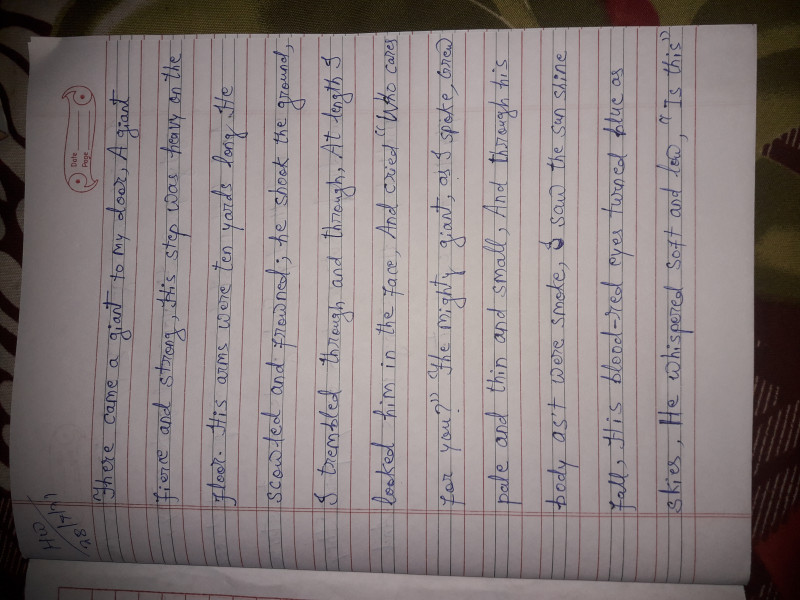 HW
28/7/21
Date
Page
There came a giant to my door, A giant
fierce and strong, His step was heavy on the
floor. His arms were ten yards long. He
scowled and frowned; he shook the ground,
I trembled through and through, At length I
looked him in the face, And cried "Who cares
for you?" The mighty giant, as I spoke, Grew
pale and thin and small, And through his
body as't were smoke, I saw the sun shine
fall, His blood-red eyes turned blue as
skies, He whispered soft and low, "Is this"